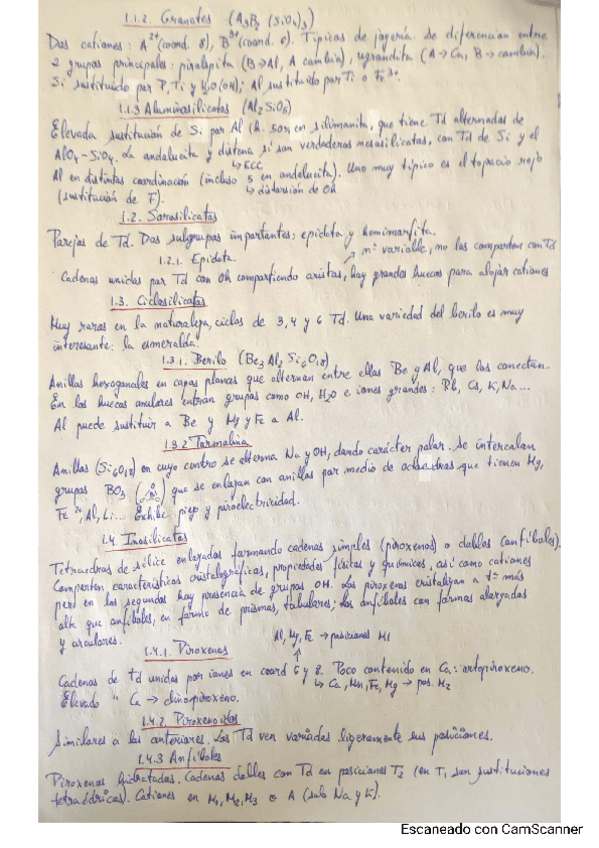 1.1.2. Granates (A₃B₂ (SiO₄)₃)
Dos cationes: A²⁺(coord. 8), B³⁺(coord. 6). Típicos de joyería. Se diferencian entre
2 grupos principales: piralpita (B→Al, A cambia), ugrandita (A→Ca, B→cambia).
Si sustituido por P, Ti y H₂O(OH); Al sustituido por Ti o Fe³⁺.
1.1.3 Aluminosilicatos (Al₂SiO₅)
Elevada sustitución de Si por Al (h. 50% en silimanita, que tiene Td alternados de
AlO₄-SiO₄. La andalucita y distena si son verdaderos nesosilicatos, con Td de Si y el
↳ ECC
Al en distintas coordinación (incluso 5 en andalucita). Uno muy típico es el topacio rojo
(sustitución de F). ↳ distorsión de Oh
1.2. Sorosilicatos
Parejas de Td. Dos subgrupos importantes; epidota y hemimorfita.
↗ nº variable, no las comparten con Td
1.2.1. Epidota
Cadenas unidas por Td con Oh compartiendo aristas, hay grandes huecos para alojar cationes
1.3. Ciclosilicatos
Muy raros en la naturaleza, ciclos de 3, 4 y 6 Td. Una variedad del berilo es muy
interesante: la esmeralda.
1.3.1. Berilo (Be₃Al₂Si₆O₁₈)
Anillos hexagonales en capas planas que alternan entre ellas Be y Al, que las conectan.
En los huecos anulares entran grupos como OH, H₂O e iones grandes: Rb, Cs, K, Na...
Al puede sustituir a Be y Mg y Fe a Al.
1.3.2 Turmalina
Anillos (Si₆O₁₈) en cuyo centro se alterna Na y OH, dando carácter polar. Se intercalan
grupos BO₃ que se enlazan con anillos por medio de octaedros que tienen Mg,
Fe²⁺, Al, Li... Exhibe piezo y piroelectricidad.
1.4. Inosilicatos
Tetraedros de sílice enlazados formando cadenas simples (piroxenos) o dobles (anfíboles).
Comparten características cristalográficas, propiedades físicas y químicas, así como cationes
pero en los segundos hay presencia de grupos OH. Los piroxenos cristalizan a tª más
alta que anfíboles, en forma de prismas, tabulares; los anfíboles con formas alargadas
y aciculares.
Al, Mg, Fe → posiciones M1
1.4.1. Piroxenos
Cadenas de td unidas por iones en coord 6 y 8. Poco contenido en Ca: ortopiroxeno.
↳ Ca, Mn, Fe, Mg → pos. M₂
Elevado " Ca → clinopiroxeno.
1.4.2. Piroxenoides
Similares a los anteriores. Los Td ven variadas ligeramente sus posiciones.
1.4.3 Anfíboles
Piroxenos hidratados. Cadenas dobles con Td en posiciones T₂ (en T₁ son sustituciones
tetraédricas). Cationes en M₁, M₂, M₃ o A (solo Na y K).
Escaneado con CamScanner